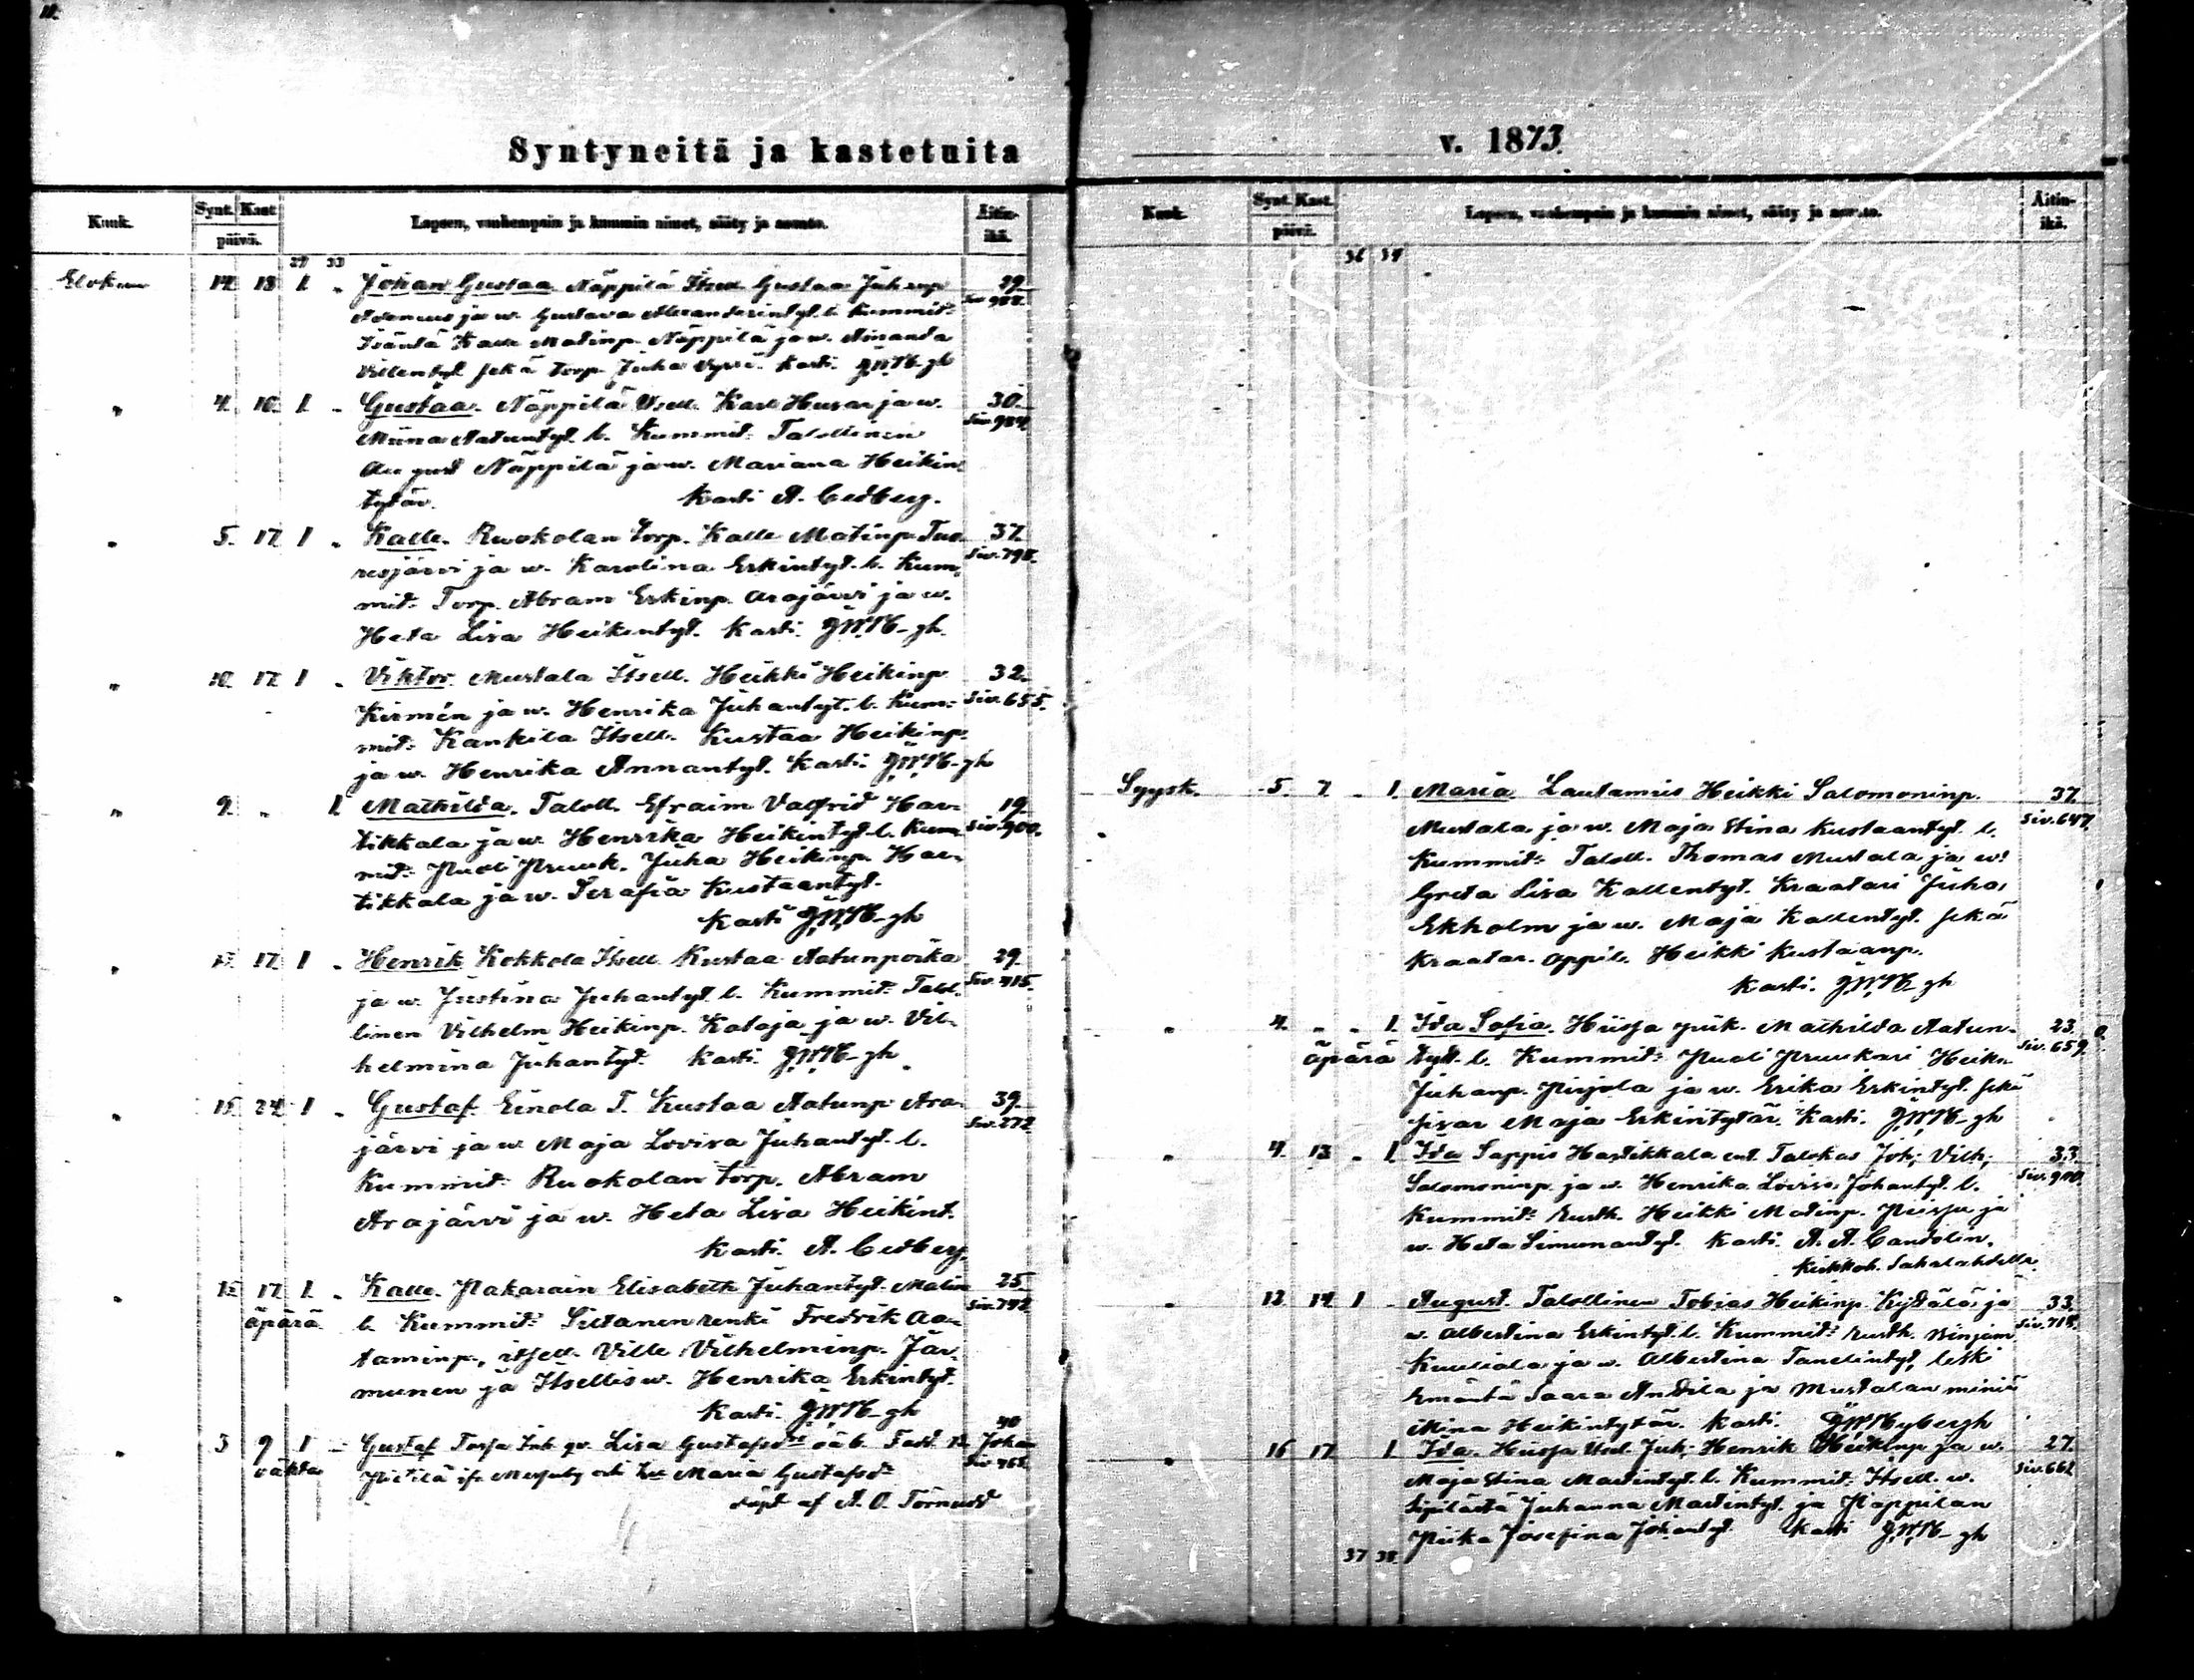 Syntyneitä ja kastetuita
Kuuk. Synt. Kast. päivä. Lapsen, vanhempain ja kummin nimet, sääty ja asunto. Äitin-ikä.
29 33
Elokuu 14 18 1 „ Johan Gustaa Näppilä Itsell. Gustaa Juhanp. 29
ja w. Gustava Alexanderintyt. l. Kummit: Siv. 988.
Isäntä Kalle Matinp. Näppilä ja w. Amanda
Villentyt. sekä torp. Juha Kasti. G.W.W-gh
„ 4. 10. 1. - Gustaa. Näppilä Itsell. Karl Husar ja w. 30.
Miina Aatuntyt. l. Kummit: Talollinen Siv. 984
August Näppilä ja w. Mariana Heikin
tytär. Kasti A. Cedberg.
„ 5. 17. 1 „ Kalle. Ruokolan torp. Kalle Matinp. Tuo- 37.
resjärvi ja w. Karolina Erkintyt. l. Kum- Siv. 798.
mit: Torp. Abram Erkinp. Arajärvi ja w.
Heta Lisa Heikintyt. Kasti. G.W.W-gh.
„ 10. 17. 1 „ Viktor. Mustala Itsell. Heikki Heikinp. 32.
Kirmén ja w. Henrika Juhantyt. l. Kum- Siv. 655.
mit: Kankila Itsell. Kustaa Heikinp.
ja w. Henrika Annantyt. Kasti. G.W.W-gh
„ 9. „ 1. Mathilda. Taloll. Efraim Valfrid Har- 19.
tikkala ja w. Henrika Heikintyt. l. Kum- Siv. 900.
mit: Puoli Pruuk. Juha Heikinp. Har-
tikkala ja w. Serafia Kustaantyt.
Kasti G.W.W-gh
„ 17. 1 „ Henrik Kokkola Itsell. Kustaa Aatunpoika 29.
ja w. Justina Juhantyt. l. Kummit: Talol- Siv. 415.
linen Vilhelm Heikinp. Kataja ja w. Vil-
helmina Juhantyt. Kasti. G.W.W-gh.
„ 15. 24. 1 „ Gustaf. Einola T. Kustaa Aatunp. Ara- 39.
järvi ja w. Maja Lovisa Juhantyt. l. Siv. 272
Kummit: Ruokolan torp. Abram
Arajärvi ja w. Heta Lisa Heikint.
Kasti. A. Cedberg.
„ 15. 17. 1. „ Kalle. Pakarain Elisabeth Juhantyt. Malin 25.
äpärä l. Kummit: Siltanen renki Fredrik Aa- Siv. 742.
taminp., itsell. Ville Vilhelminp. Jär-
munen ja Itsellis w. Henrika Erkintyt.
Kasti. G.W.W-gh
„ 3 9 1 - Gustaf Lisa Gustafsdr oäb. Fadd. 40
Pietilä Maria Gustafsdr
döpt af A. O. Törnudd
v. 1873.
Kuuk. Synt. Kast. päivä. Lapsen, vanhempain ja kummin nimet, sääty ja asunto. Äitin-ikä.
36 34
Syysk. 5. 7. „ 1. Maria. Lautamies Heikki Salomoninp. 37.
Mustala ja w. Maja Stina Kustaantyt. l. Siv. 647.
Kummit: Taloll. Thomas Mustala ja w.
Greta Lisa Kallentyt. Kraatari Juha
Ekholm ja w. Maja Kallentyt. sekä
Kraatar. oppil. Heikki Kustaanp.
Kasti. G.W.W-gh
„ 4. „ „ 1. Ida Sofia. Hiisja piik. Mathilda Aatun- 23.
äpärä tyt. l. Kummit: Puoli Pruukari Heikki Siv. 659.
Juhanp. Pirjola ja w. Erika Erkintyt. sekä
sisar Maja Erkintytär. Kasti. G.W.W-gh
„ 4. 13. „ 1. Ida Sappis Hartikkala ent. Talokas Joh: Vilh: 33.
Salomoninp. ja w. Henrika Lovisa Johantyt. l. Siv. 900.
Kummit: Rusth. Heikki Matinp. ja
w. Heta Simunantyt. Kasti. A. A. Candolin.
Kirkkoh. Sahalahdella.
„ 12 14 1 - August. Talollinen Tobias Heikinp. Kyttälä ja 33.
w. Albertina Erkintyt. l. Kummit: Rusth. Binjam. Siv. 718.
Kuuliala ja w. Albertina Tanelintyt, leski
Emäntä Saara Anttila ja Mustalan miniä
Miina Heikintytär. Kasti. G.W.Wybergh
„ 16 17 1. Ida. Hiisja Itsell. Juh: Henrik Heikinp. ja w. 27.
Maja Stina Martintyt. l. Kummit: Itsell. w. Siv. 662
Sipilästä Juhanna Martintyt. ja Pappilan
Piika Josefina Johantyt. Kasti G.W.W-gh
37 38.